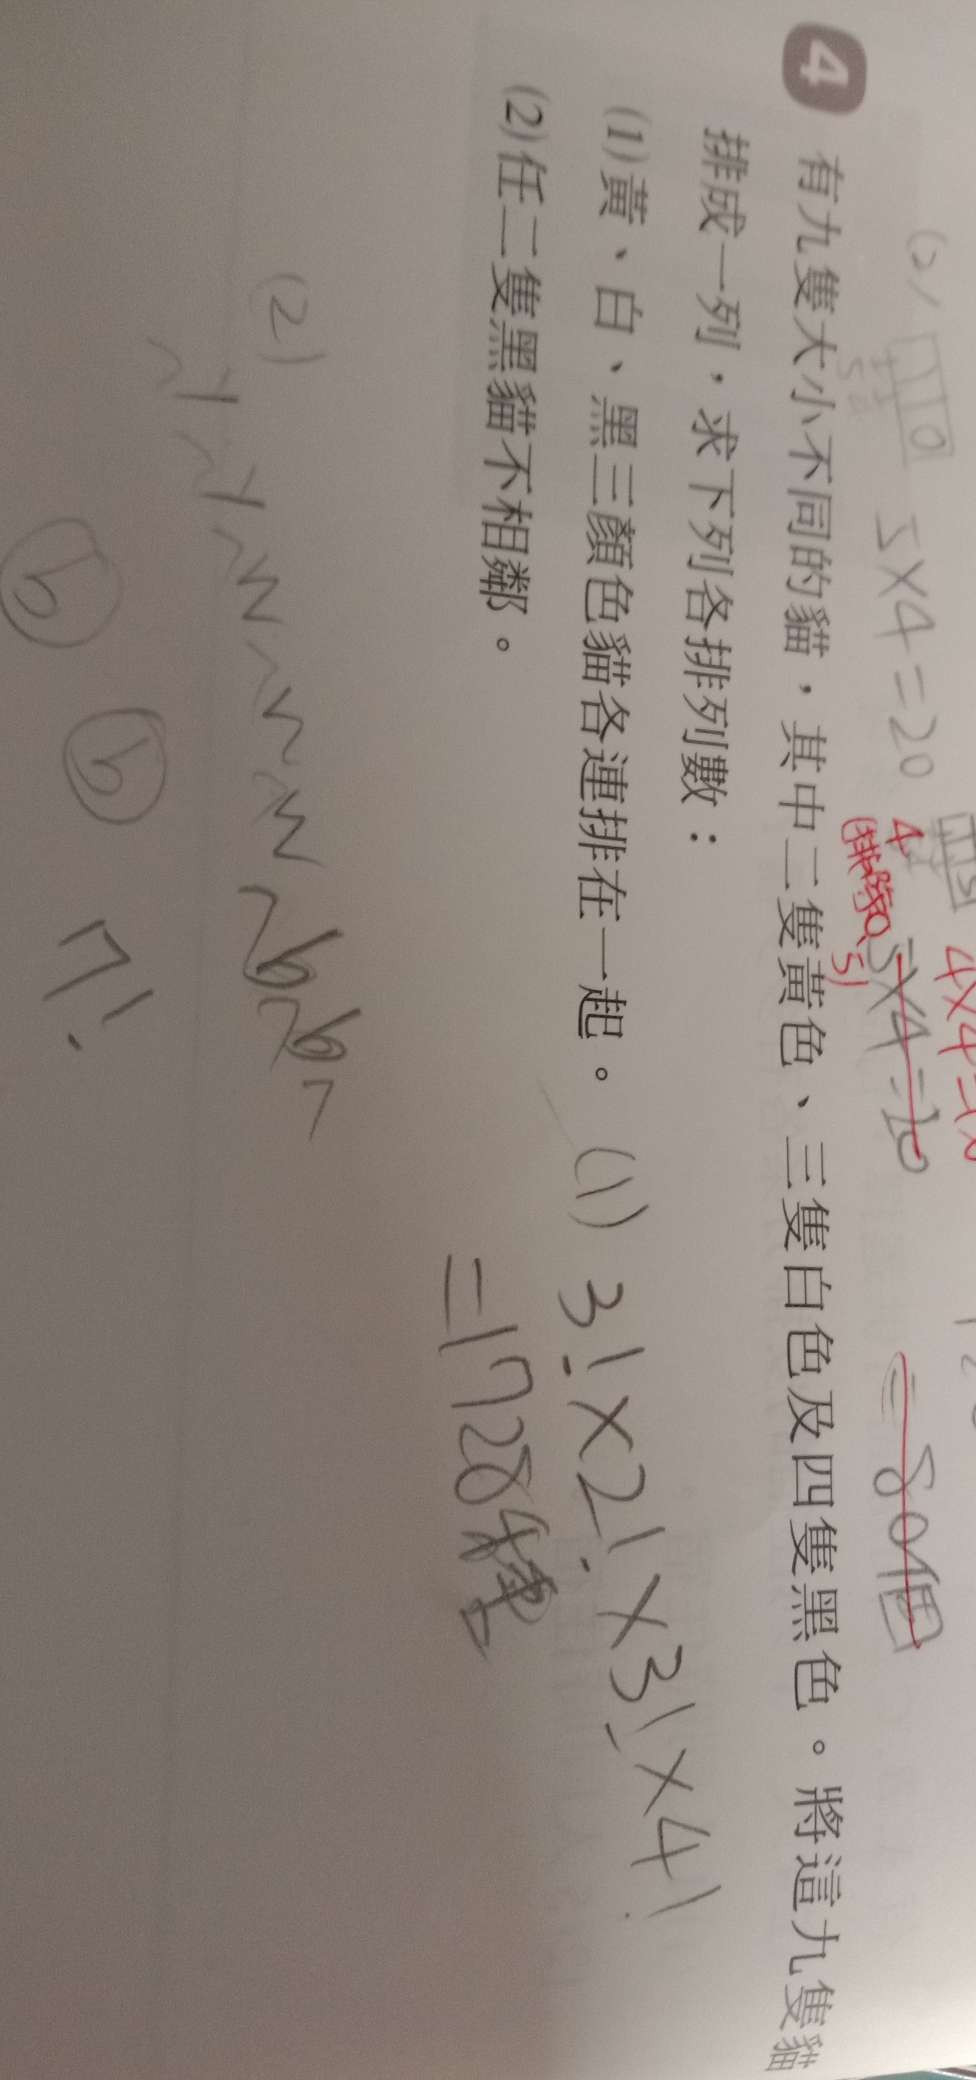 (2) 5×4=20
4×4
4
(排除0、5)
5×4=20
=80個
4 有九隻大小不同的貓，其中二隻黃色、三隻白色及四隻黑色。將這九隻貓
排成一列，求下列各排列數：
(1)黃、白、黑三顏色貓各連排在一起。
(1) 3!×2!×3!×4!
=1728種
(2)任二隻黑貓不相鄰。
(2)
Y Y W W W b b
b b 7!